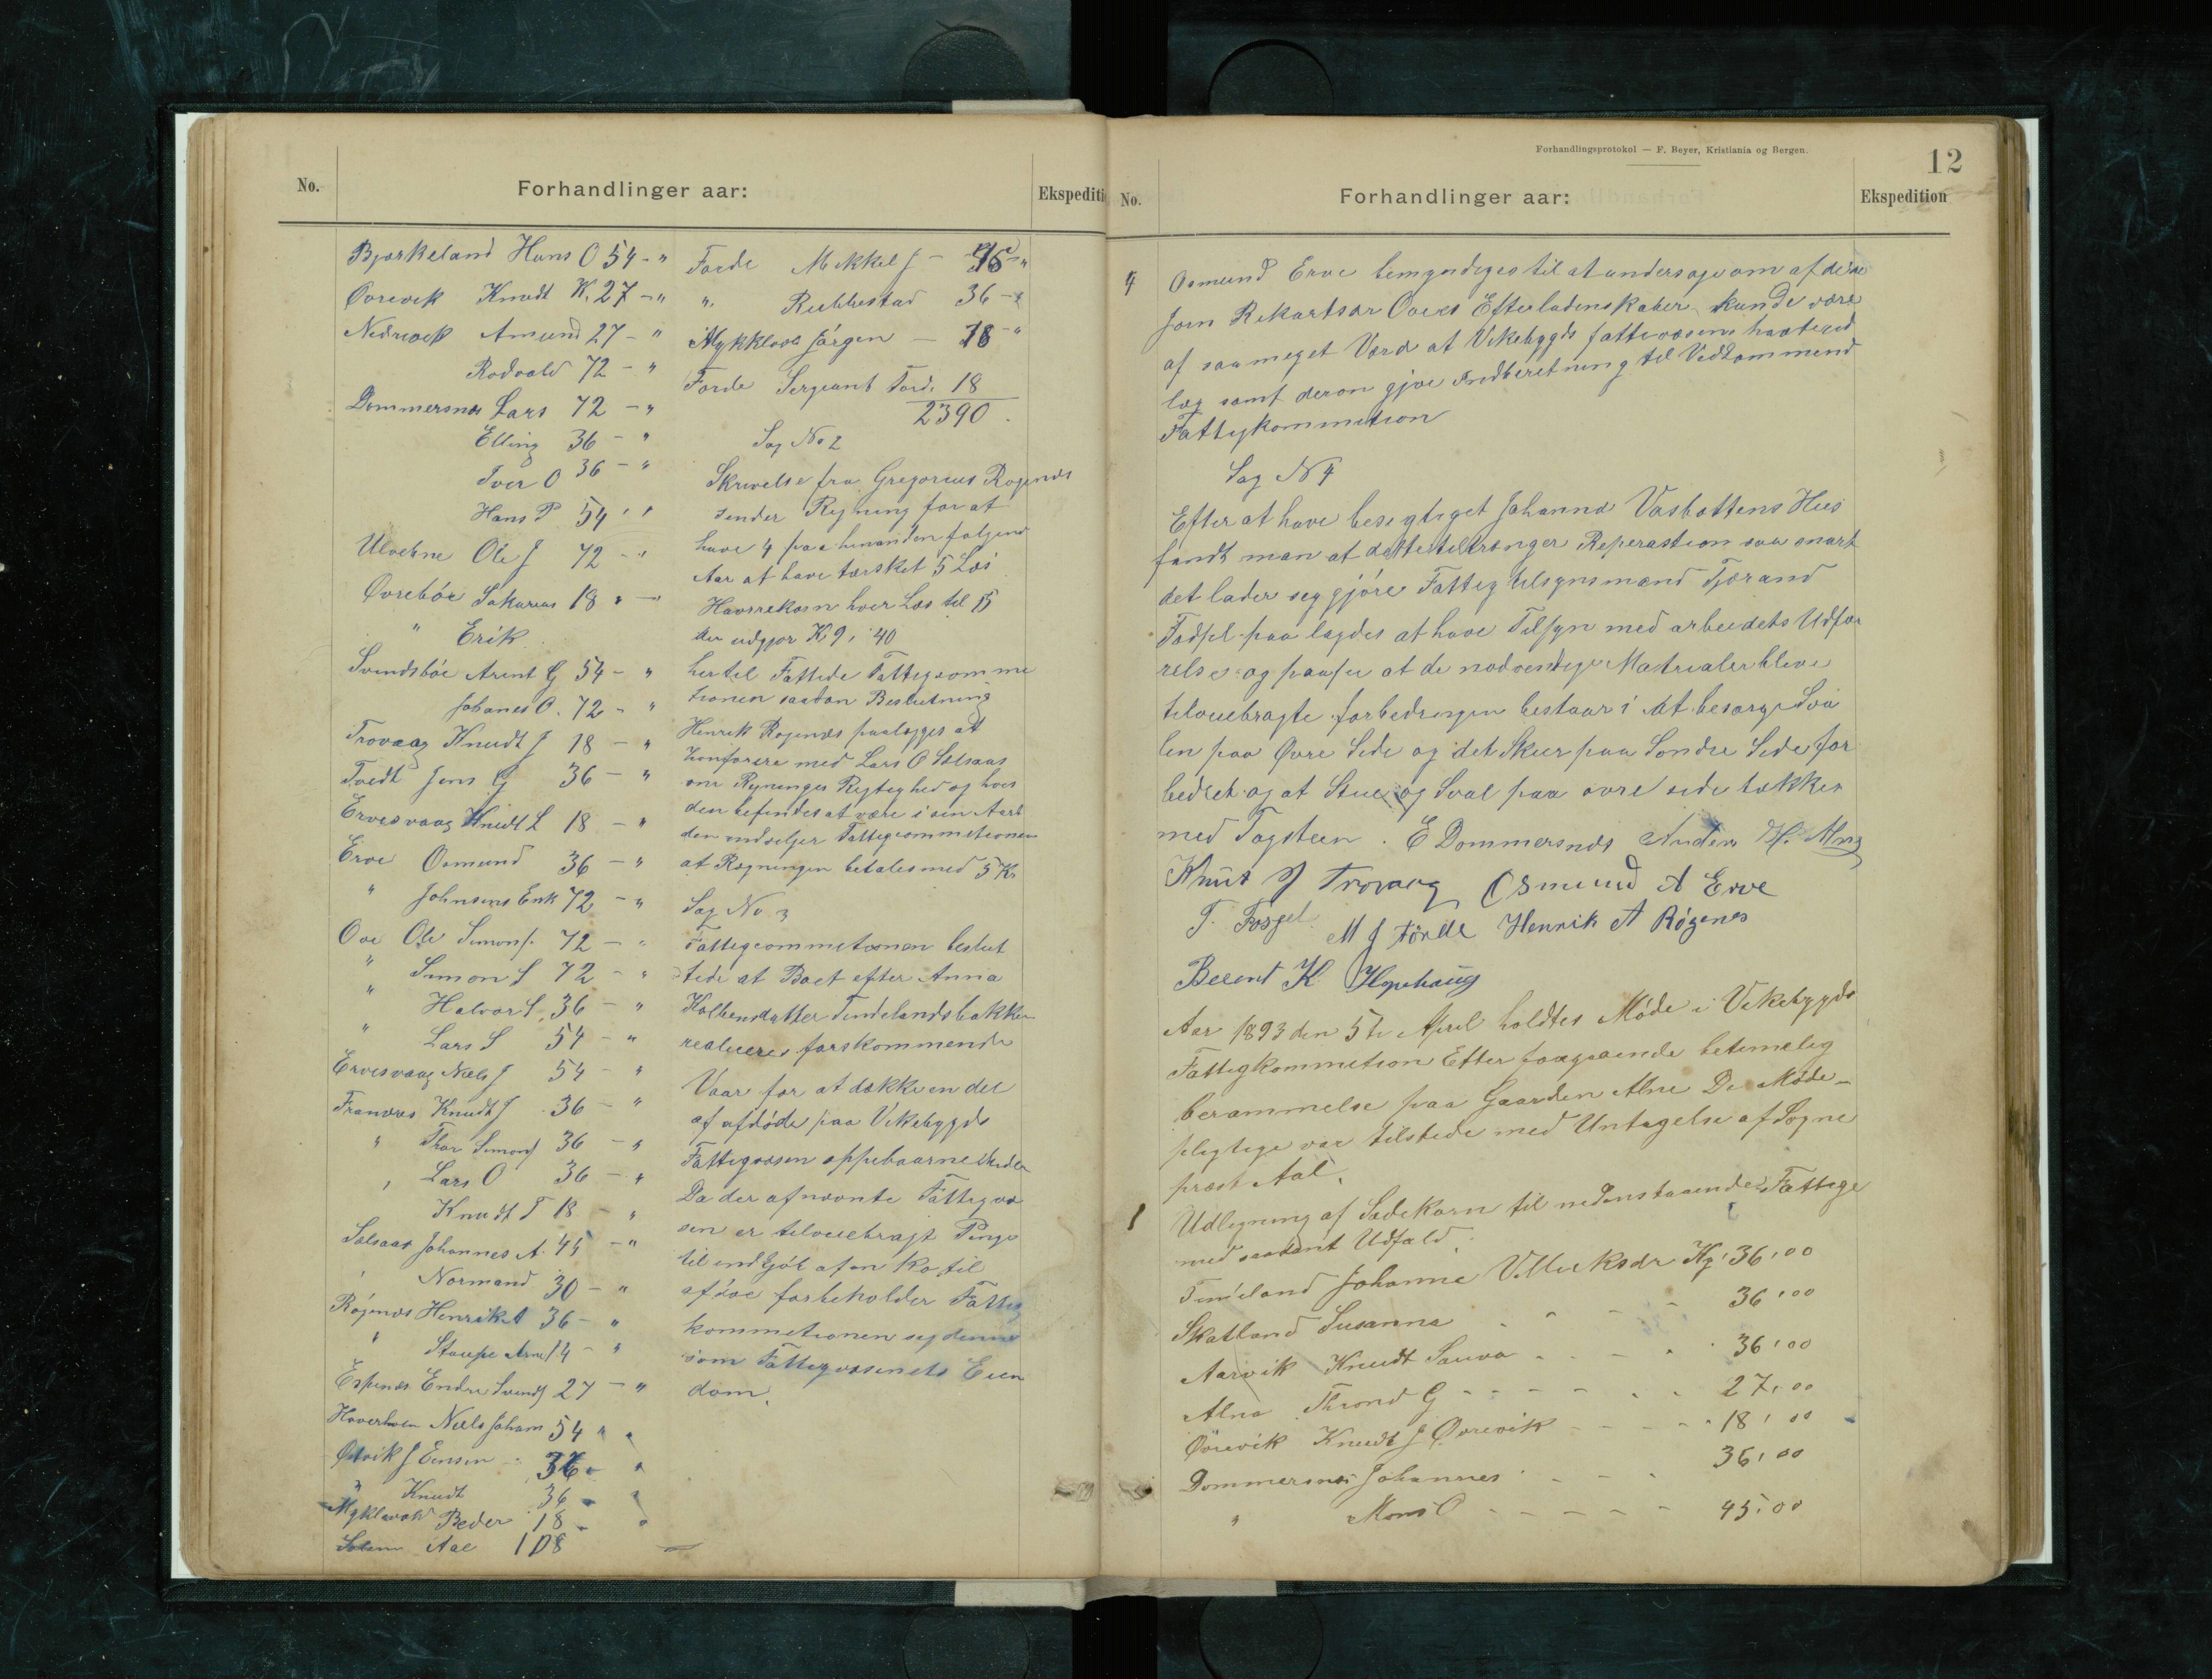 No.
Forhandlinger aar:
Ekspediti
Bjørkeland Hans O 54 - "
Øvrevik Knudt K. 27 - "
Nedrevik Amund 27 - "
Rodvald 72 - "
Dommersnes Lars 72 - "
Elling 36 - "
Iver O 36 - "
Hans P 54 " "
Ulvehne Ole J 72 - "
Øvrebøe Sakarias 18 " -
" Erik
Svendsbøe Arent G 54 - "
Johanes O. 72 - "
Trovaag Knudt J 18 - "
Tvedt Jens G 36 - "
Ervesvaag Knudt L 18 - "
Erve Osmund 36 - "
" Johnsens Enk 72 - "
Ove Ole Simons. 72 - "
" Simon S 72 - "
" Halvor S. 36 - "
" Lars S 54 - "
Ervesvaag Niels J 54 - "
Framnes Knudt J 36 - "
" Thor Simons 36 - "
, Lars O 36 - "
Knudt T 18 - "
Sølsaas Johannes A. 45 - "
Normand 30 - "
Røgenes Henrik A 36 - "
" Staupe Arne 14 - "
Espenes Endre Svends 27 - "
Haverhom Niels Johan 54 " "
Ølvik J Eensen 36 - "
" Knudt 36 - "
Myklevold Peder 18 - "
Aae 108
Førde Mikkel J - 96 "
" Rubbestad 36 - "
Mykkland Jørgen - 18 - "
Førde Sergeant Tord. 18
2390
Sag No 2
Skrivelse fra Gregorius Røgenes
sender Regning for at
have 4 paa hinanden følgend
Aar at have tærsket 5 Læs
Havrekorn hver Læs til 15
der udgjør K 9, 40
hertil Fattede Fattigcomme
tionen saadan Beslutning
Henrik Røgenes paalægges at
konforere med Lars O Sølsaas
om Regninges Rigtighed og hvis
den befindes at være i sin
den indvilger Fattigcommetionen
at Regningen betales med 5 Kr
Sag No 3
Fattigcommetionen beslut
tede at Boet efter Anna
Kolbensdatter Tindelandsbakken
realiceres førskommende
Vaar for at dække en del
af afdøde paa Vikebygds
Fattigvæsen oppebaarne Midler
Da der af nævnte Fattigvæ
sen er tilveiebragt Penge
til indkjøb af en Ko til
afdøe forbeholder Fattig
kommetionen sig denne
som Fattigvæsenets Eien
dom.
Forhandlingsprotokol — F. Beyer, Kristiania og Bergen.
12
No.
Forhandlinger aar:
Ekspedition
4 Osmund Erve bemyndiges til at undersøge om afdøde
Jorn Rikartsør Oves Efterladenskaber kunde være
af saa meget Værd at Vikebygds fattivæsens havte
læg samt derom gjøe Indberetning til Vedkommend
Fattigkommetion
Sag N 4
Efter at have besigtiget Johanna Vasbottens Hus
fandt man at dette tiltrænger Reperastion saa snart
det lader seg gjøre Fattigtilsynsmand Tjærand
Fosfel paa lægdes at have Tilsyn med arbeidets Udfø
relse og paase at de nødvendige Matrialer blive
tilveiebragte forbedringen bestaar i At besørge Sva
len paa Øvre Side og det Skur paa Søndre Side for
bedret og at Stue og Sval paa øvre side tækkes
med Tagsteen. E Dommersnes Anders H. Alne
Knut J Trovaag Osmund A Erve
T. Fosfel M J Førde Henrik A Røgenes
Berent K Hopehaug
Aar 1893 den 5te April holdtes Møde i Vikebygds
Fattigkommetion Efter foregaaende betimelig
berammelse paa Gaarden Alne De Møde-
pligtige var tilstede med Untagelse af Sogne
præst Aal.
1 Udligning af Sædekorn til nedenstaaende Fattige
med saadant Udfald.
Tindeland Johanne Villiksdr Kg. 36,00
Skatland Susanna - - - - 36,00
Aarvik Knudt Sauvo - - - - 36,00
Alne Thrond G - - - - - 27,00
Øvrevik Knudt J Øvrevik - - - - 18,00
Dommersnes Johannes - - - 36,00
" Mons O - - - - - 45,00